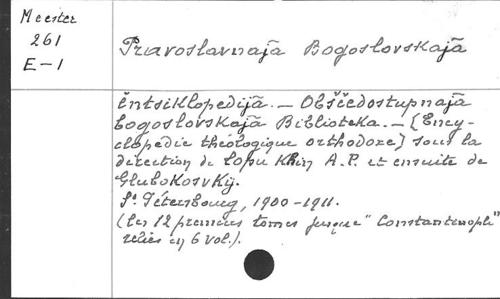 Meester
261
E-1
Pravoslavnajā Bogoslovskajā
èntsiklopedijā. — Obščedostupnajā
bogoslovskajā Biblioteka. — [Ency-
clopédie théologique orthodoxe] sous la
direction de Lopu Khin A.P. et ensuite de
GluboKosvKij.
St Pétersbourg, 1900-1911.
(les 12 premiers tomes jusque "Constantinople"
reliés en 6 vol.).